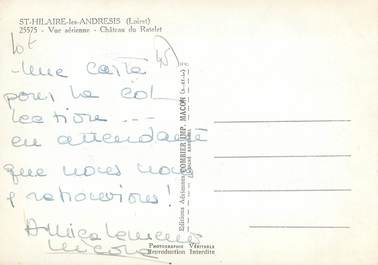 ST-HILAIRE-les-ANDRESIS (Loiret)
25575 - Vue aérienne - Château du Ratelet
45
- Une carte
pour la col
lection ...
en attendant
que nous nous
y retrouvions !
Amicalement
Nicole
Editions Aériennes COMBIER IMP. MACON (S.-et-L.)
PHOTOGRAPHIE VÉRITABLE
Reproduction Interdite